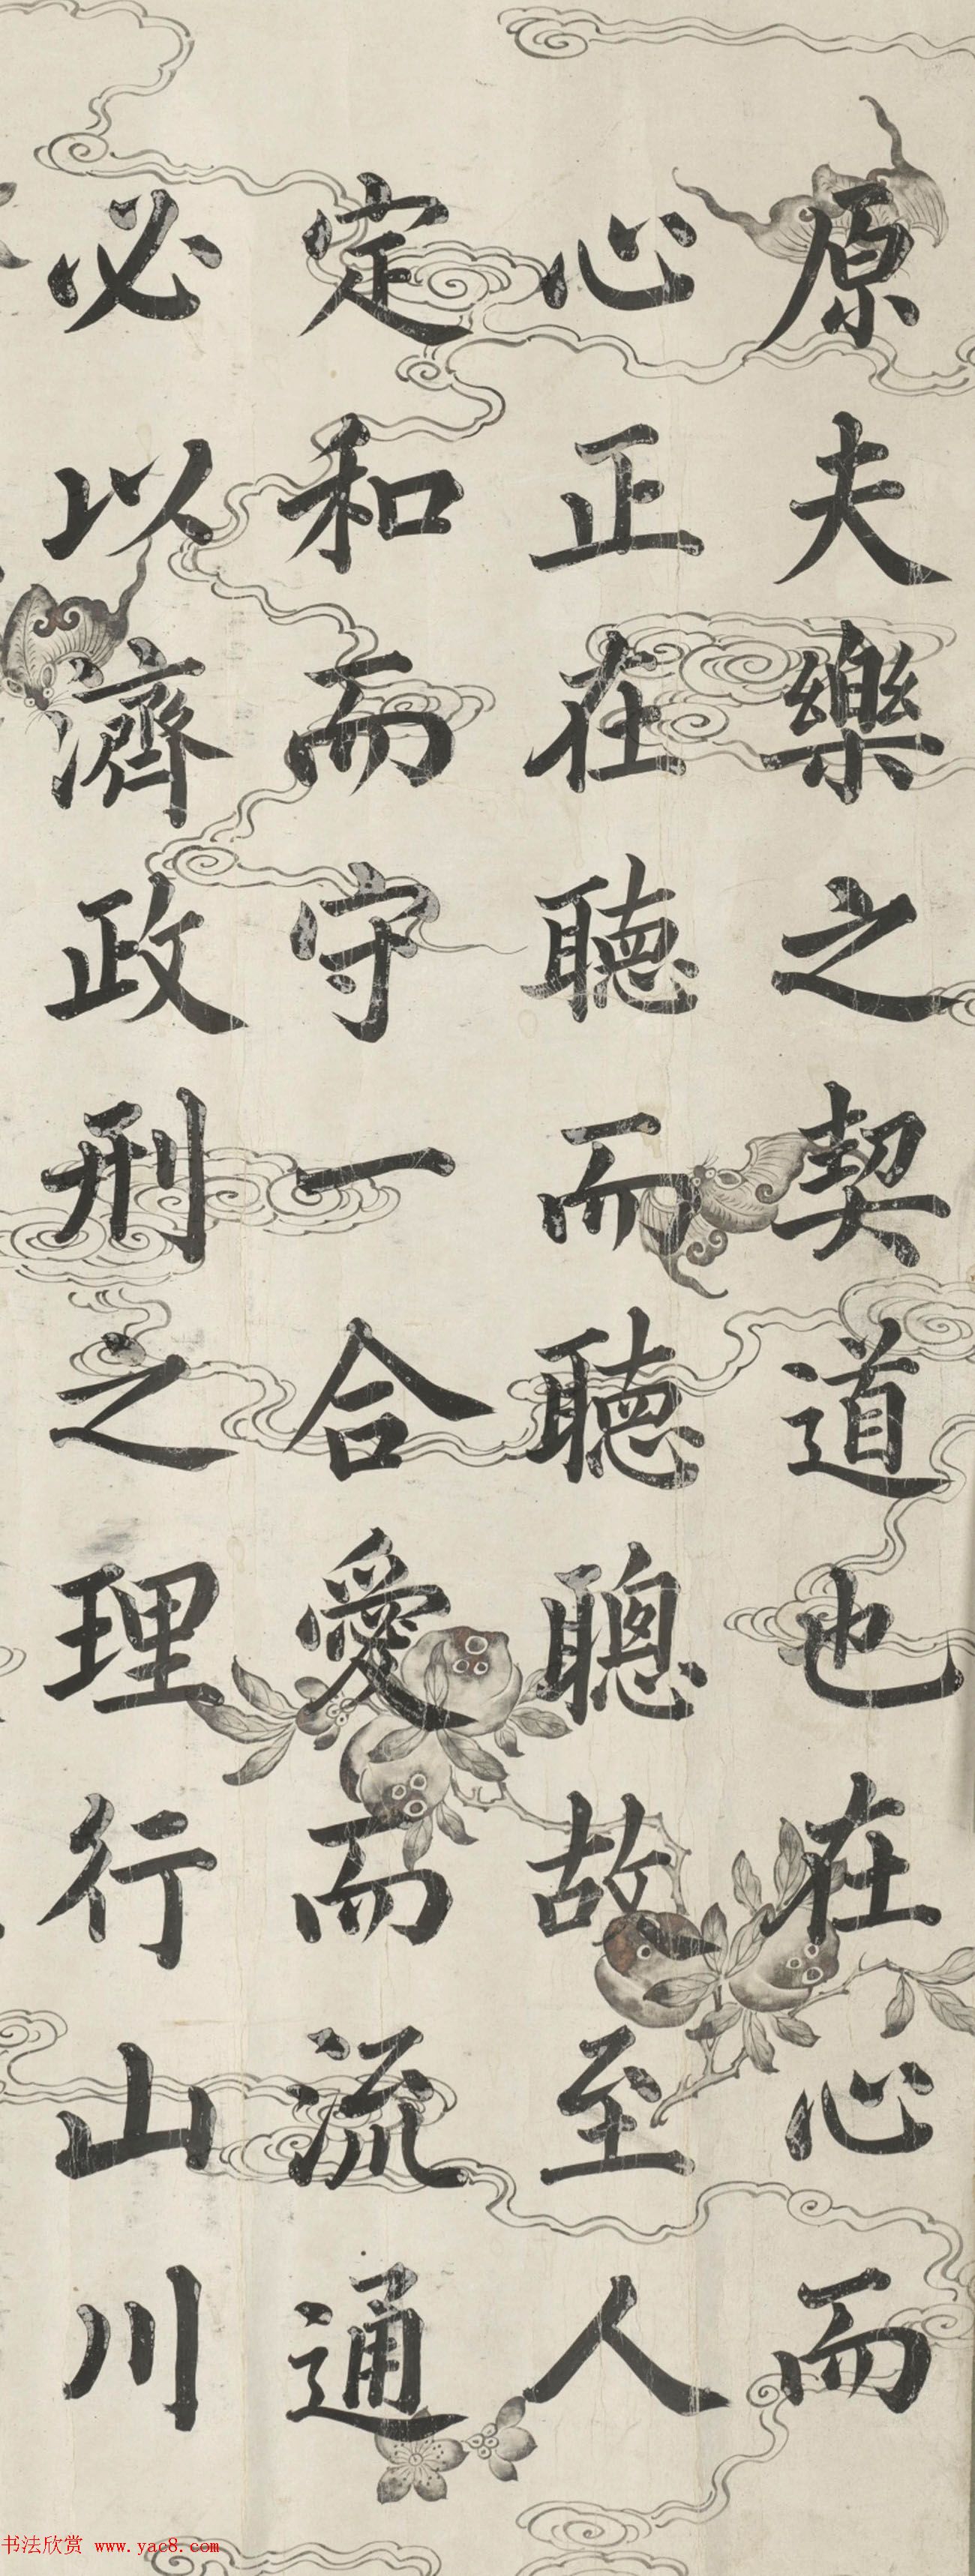 原夫樂之契道也在心而
心正在聽而聽聰故至人
定和而守一合愛而流通
必以濟政刑之理行山川
书法欣赏 www.yac8.com